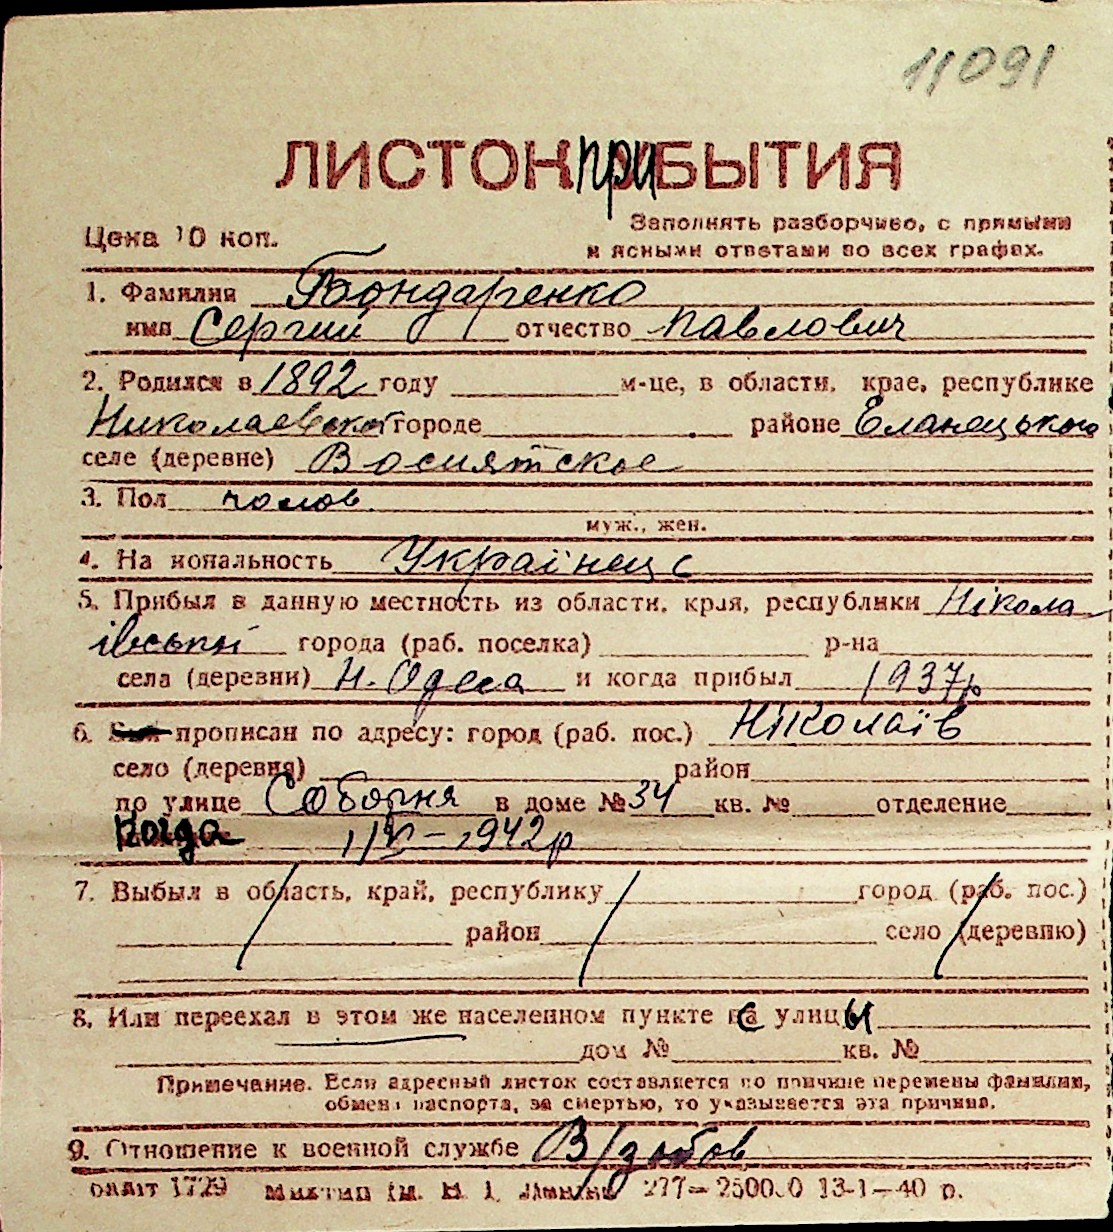 11091
ЛИСТОК ПРИБЫТИЯ
Цена 10 коп.
Заполнять разборчиво, с прямыми
и ясными ответами во всех графах.
1. Фамилия Бондаренко
имя Сергий отчество Павлович
2. Родился в 1892 году м-це, в области, крае, республике
Николаевской городе районе Еланецького
селе (деревне) Восиятское
3. Пол чолов.
муж., жен.
4. Национальность Українець
5. Прибыл в данную местность из области, края, республики Нікола
ївської города (раб. поселка) р-на
села (деревни) Н. Одеса и когда прибыл 1937р
6. прописан по адресу: город (раб. пос.) Ніколаїв
село (деревня) район
по улице Соборня в доме № 34 кв. № отделение
Когда 1942р
7. Выбыл в область, край, республику город (раб. пос.)
район село (деревню)
8. Или переехал в этом же населенном пункте с улицы
дом № кв. №
Примечание. Если адресный листок составляется по причине перемены фамилии,
обмена паспорта, за смертью, то указывается эта причина.
9. Отношение к военной службе В/зобов
1729 277— 13-1—40 р.